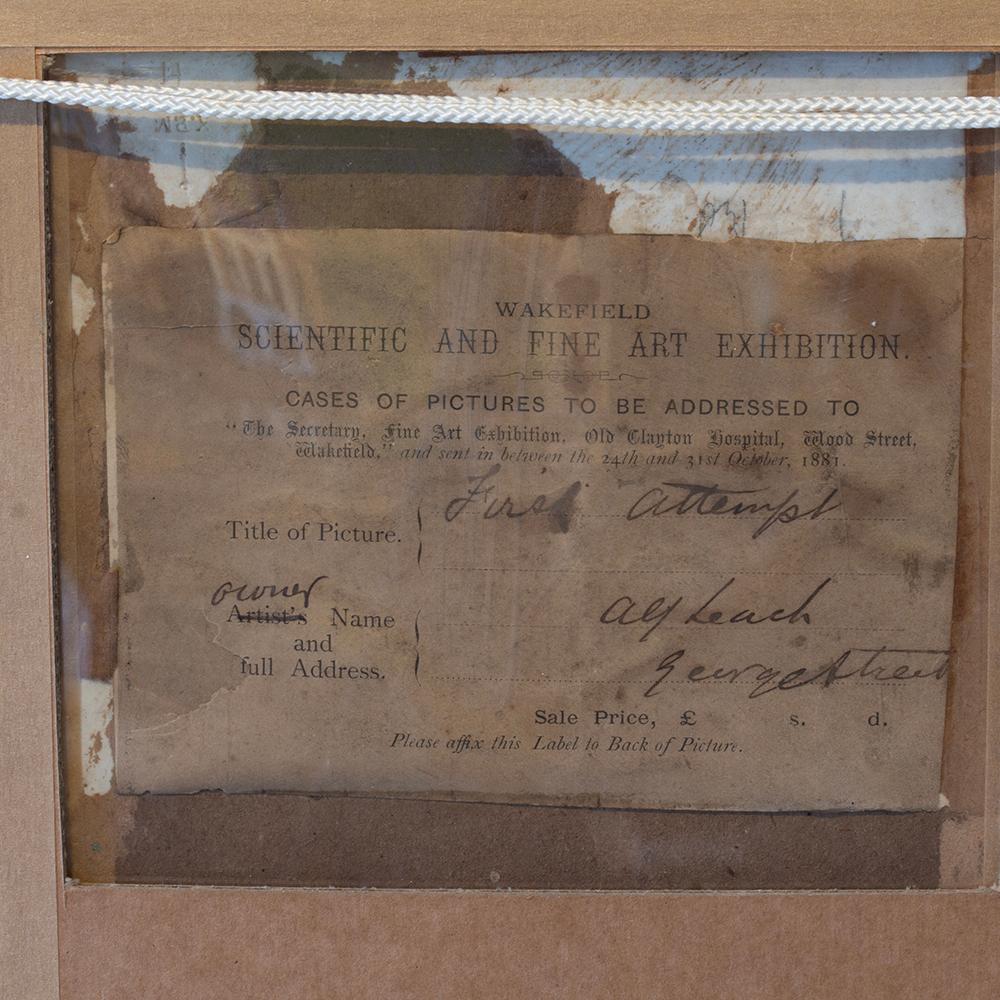 WAKEFIELD
SCIENTIFIC AND FINE ART EXHIBITION.
CASES OF PICTURES TO BE ADDRESSED TO
"The Secretary, Fine Art Exhibition, Old Clayton Hospital, Wood Street,
Wakefield," and sent in between the 24th and 31st October, 1881.
First attempt
Title of Picture.
owner
Artist's Name
and
full Address.
Alf Leach
George Street
Sale Price, £ s. d.
Please affix this Label to Back of Picture.